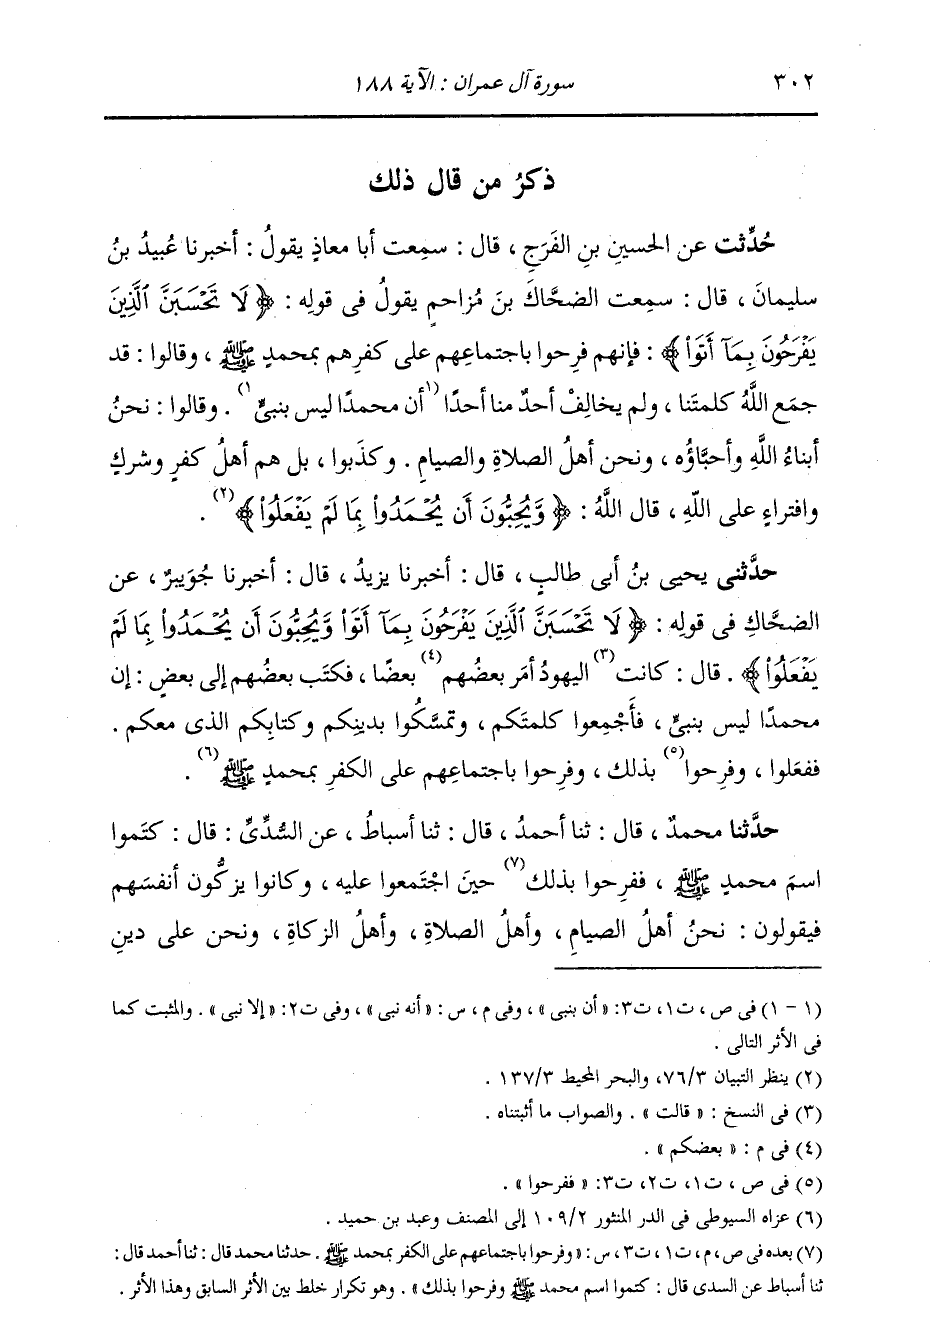 ٣٠٢ سورة آل عمران : الآية ١٨٨
ذكرُ من قال ذلك
حُدِّثت عن الحسينِ بنِ الفَرَجِ ، قال : سمِعت أبا معاذٍ يقولُ : أخبرنا عُبيدُ بنُ
سليمانَ ، قال : سمِعت الضحَّاكَ بنَ مُزاحمٍ يقولُ فى قولِه : ﴿ لَا تَحْسَبَنَّ ٱلَّذِينَ
يَفْرَحُونَ بِمَآ أَتَوا۟ ﴾ : فإنهم فرِحوا باجتماعِهم على كفرِهم بمحمدٍ ﷺ ، وقالوا : قد
جمَع اللَّهُ كلمتَنا ، ولم يخالِفْ أحدٌ منا أحدًا (١أن محمدًا ليس بنبىٍّ١) . وقالوا : نحنُ
أبناءُ اللَّهِ وأحبَّاؤُه ، ونحن أهلُ الصلاةِ والصيامِ . وكذَبوا ، بل هم أهلُ كفرٍ وشركٍ
وافتراءٍ على اللَّهِ ، قال اللَّهُ : ﴿ وَّيُحِبُّونَ أَن يُحْمَدُوا۟ بِمَا لَمْ يَفْعَلُوا۟ ﴾(٢) .
حدَّثنى يحيى بنُ أبى طالبٍ ، قال : أخبرنا يزيدُ ، قال : أخبرنا جُوَيبرٌ ، عن
الضحَّاكِ فى قولِه : ﴿ لَا تَحْسَبَنَّ ٱلَّذِينَ يَفْرَحُونَ بِمَآ أَتَوا۟ وَّيُحِبُّونَ أَن يُحْمَدُوا۟ بِمَا لَمْ
يَفْعَلُوا۟ ﴾ . قال : كانت(٣) اليهودُ أمَر بعضُهم(٤) بعضًا ، فكتَب بعضُهم إلى بعضٍ : إن
محمدًا ليس بنبىٍّ ، فأَجْمِعوا كلمتَكم ، وتمسَّكُوا بدينِكم وكتابِكم الذى معكم .
ففعَلوا ، وفرِحوا(٥) بذلك ، وفرِحوا باجتماعِهم على الكفرِ بمحمدٍ ﷺ(٦) .
حدَّثنا محمدٌ ، قال : ثنا أحمدُ ، قال : ثنا أسباطُ ، عن السُّدِّىِّ : قال : كتَموا
اسمَ محمدٍ ﷺ ، ففرِحوا بذلك(٧) حينَ اجْتمَعوا عليه ، وكانوا يزكُّون أنفسَهم
فيقولون : نحنُ أهلُ الصيامِ ، وأهلُ الصلاةِ ، وأهلُ الزكاةِ ، ونحن على دينِ
(١ - ١) فى ص ، ت١ ، ت٣ : « أن بنبى » ، وفى م ، س : « أنه نبى » ، وفى ت٢ : « إلا نبى » . والمثبت كما
فى الأثر التالى .
(٢) ينظر التبيان ٧٦/٣، والبحر المحيط ١٣٧/٣ .
(٣) فى النسخ : « قالت » . والصواب ما أثبتناه .
(٤) فى م : « بعضكم » .
(٥) فى ص ، ت١ ، ت٢ ، ت٣ : « ففرحوا » .
(٦) عزاه السيوطى فى الدر المنثور ١٠٩/٢ إلى المصنف وعبد بن حميد .
(٧) بعده فى ص ، م ، ت١ ، ت٣ ، س : « وفرحوا باجتماعهم على الكفر بمحمد ﷺ . حدثنا محمد قال : ثنا أحمد قال :
ثنا أسباط عن السدى قال : كتموا اسم محمد ﷺ وفرحوا بذلك » . وهو تكرار خلط بين الأثر السابق وهذا الأثر .